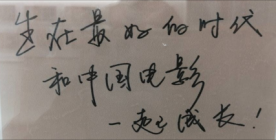 生在最好的时代
和中国电影
一起成长！